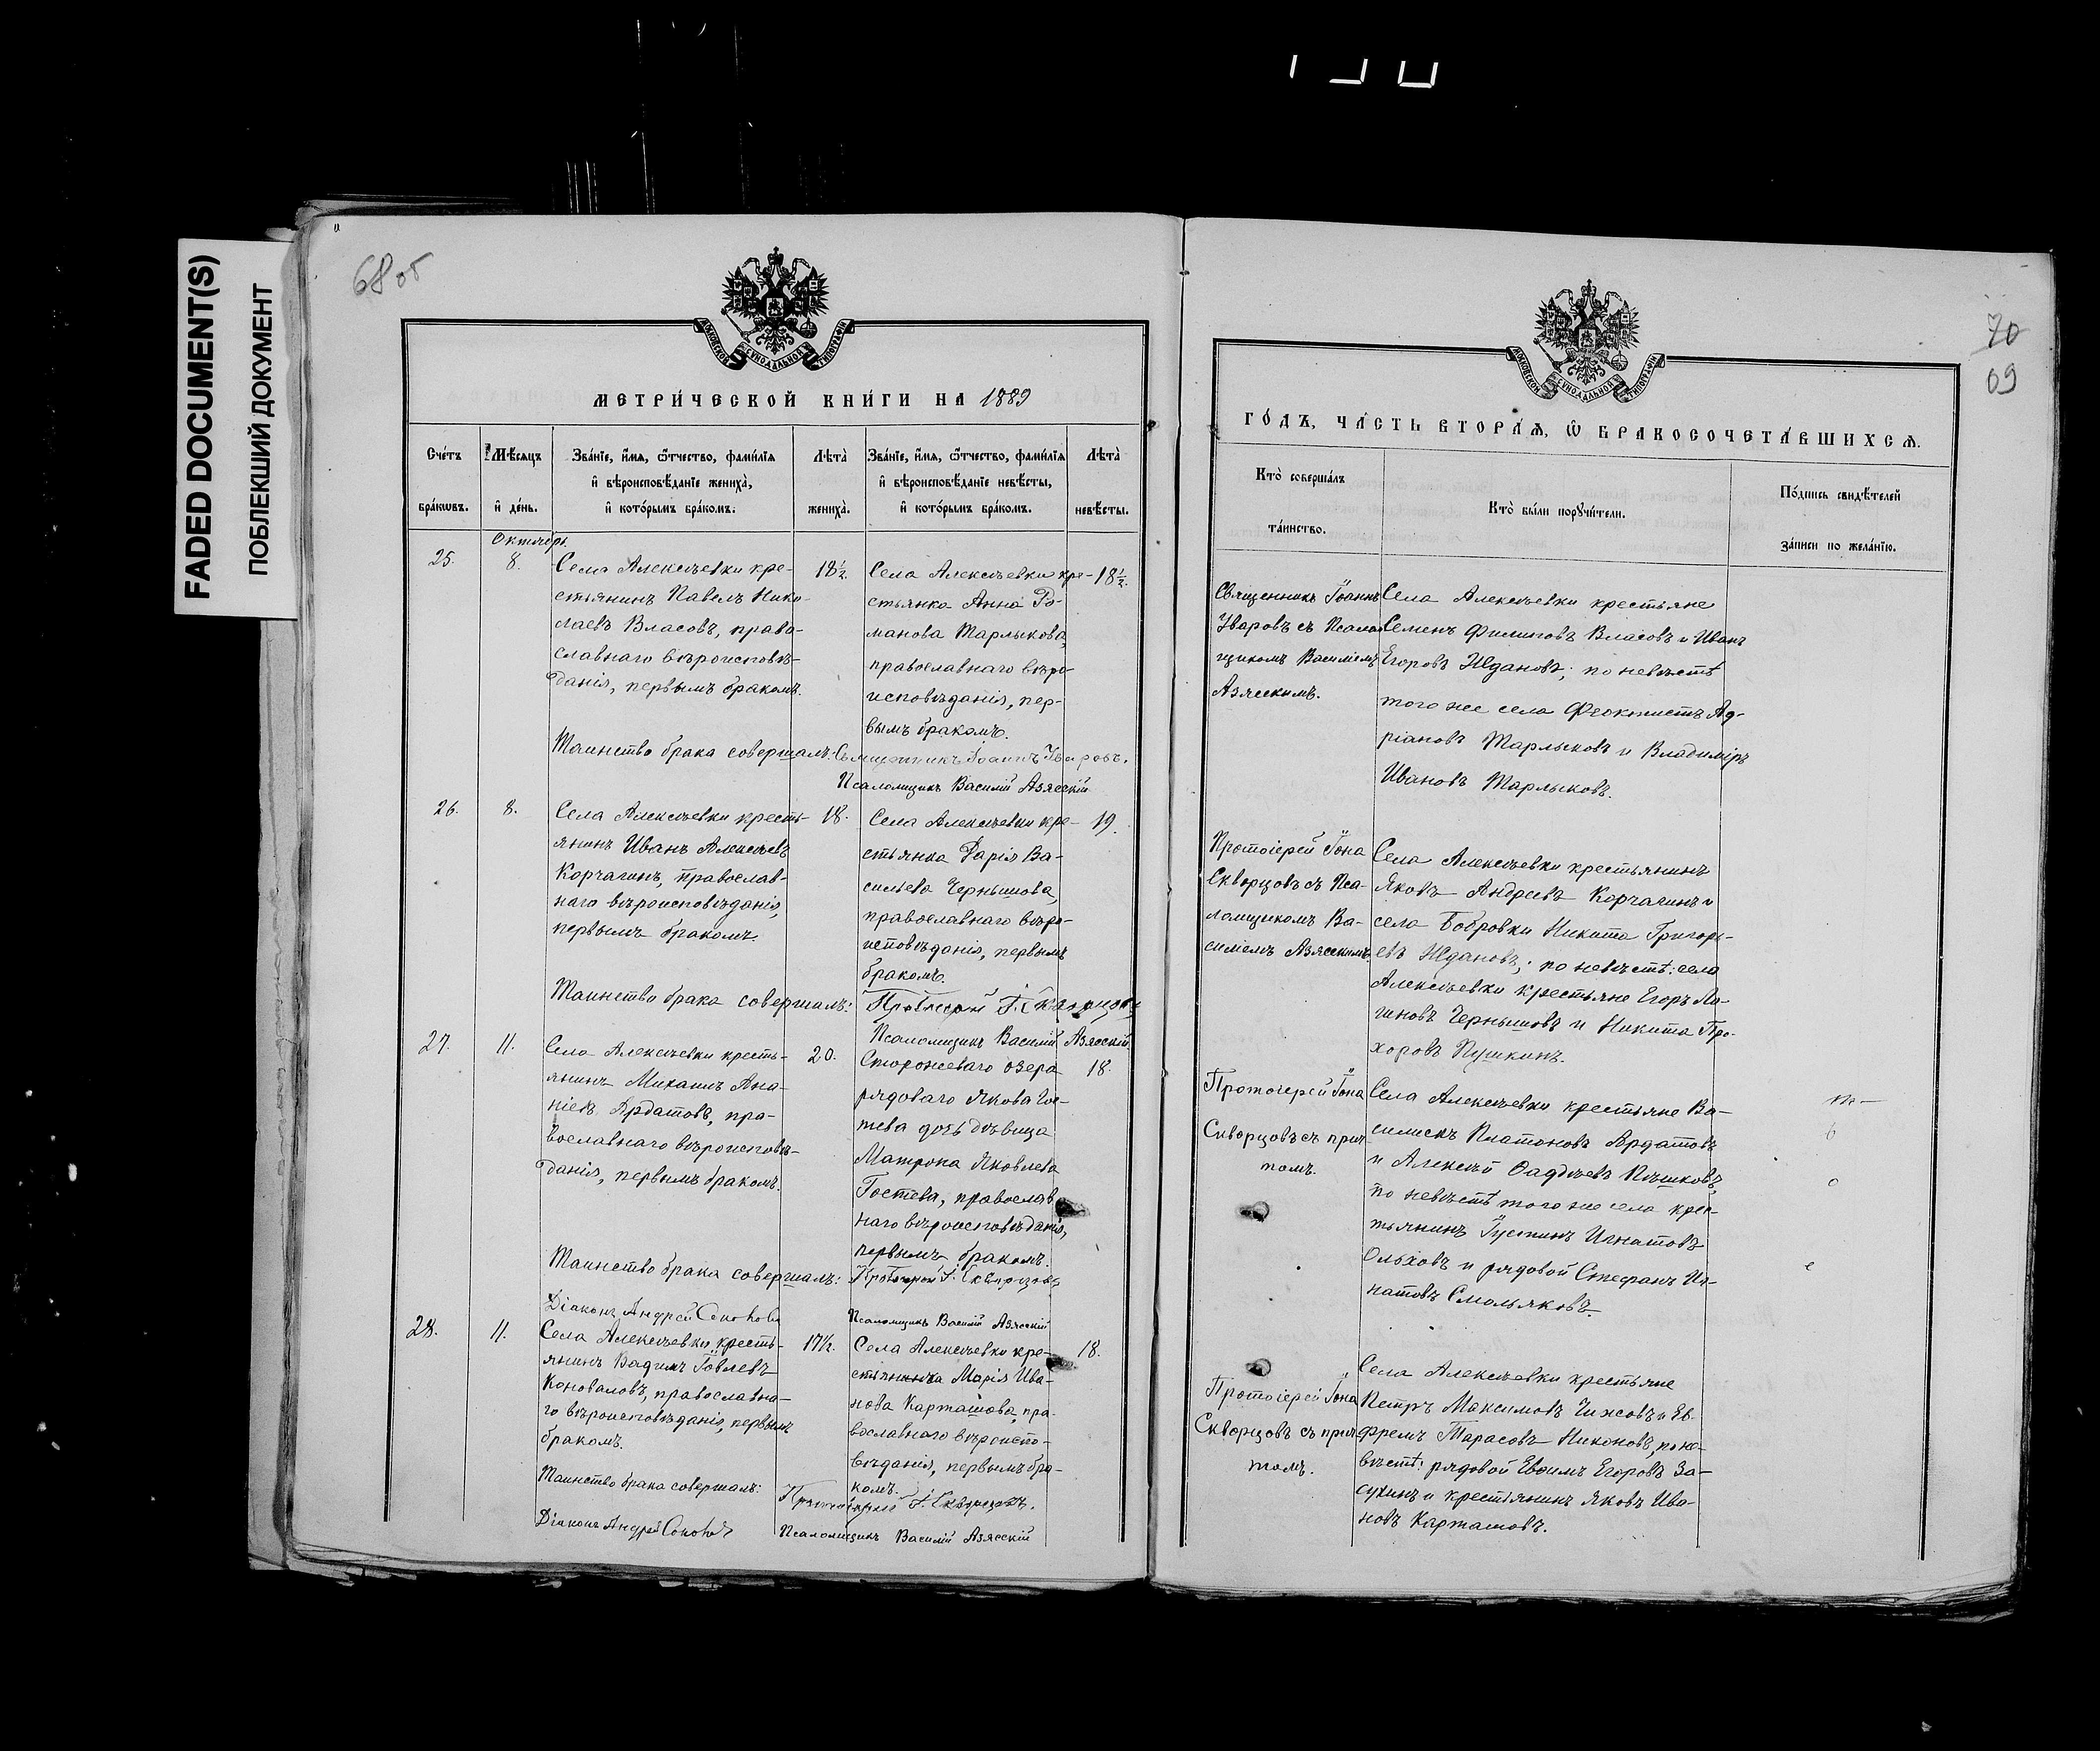 FADED DOCUMENT(S)
ПОБЛЕКШИЙ ДОКУМЕНТ
68 об
МОСКОВСКОЙ СѴНОДАЛЬНОЙ ТИПОГРАФІИ
МЕТРИ́ЧЕСКОЙ КНИ́ГИ НА 1889
Сче́тъ бра́кѡвъ.
Мѣ́сяцъ и҆ де́нь.
Зва́нїе, и҆́мя, ѻ҆́тчество, фами́лїя
и҆ вѣроисповѣ́данїе жениха̀,
и҆ кото́рымъ бра́комъ.
Лѣта̀ жениха̀.
Зва́нїе, и҆́мя, ѻ҆́тчество, фами́лїя
и҆ вѣроисповѣ́данїе невѣ́сты,
и҆ кото́рымъ бра́комъ.
Лѣта̀ невѣ́сты.
Октябрь.
25.
8.
Села Алексѣевки кре-
стьянинъ Павелъ Нико-
лаевъ Власовъ, право-
славнаго вѣроисповѣ-
данія, первымъ бракомъ.
18½.
Села Алексѣевки кре-
стьянка Анна Ро-
манова Тарлыкова,
православнаго вѣро-
исповѣданія, пер-
вымъ бракомъ.
18½.
Таинство брака совершалъ: Священникъ Іоаннъ Уваровъ.
Псаломщикъ Василій Азясскій
26.
8.
Села Алексѣевки кресть-
янинъ Иванъ Алексѣевъ
Корчагинъ, православ-
наго вѣроисповѣданія,
первымъ бракомъ.
18.
Села Алексѣевки кре-
стьянка Дарія Ва-
сильева Чернышова,
православнаго вѣро-
исповѣданія, первымъ
бракомъ.
19.
Таинство брака совершалъ: Протоіерей І. Скворцовъ
Псаломщикъ Василій Азясскій
27.
11.
Села Алексѣевки кресть-
янинъ Михаилъ Ана-
ніевъ Ардатовъ, пра-
вославнаго вѣроисповѣ-
данія, первымъ бракомъ.
20.
Сторожеваго озера
рядоваго Якова Гос-
тева дочь дѣвица
Матрона Яковлева
Гостева, православ-
наго вѣроисповѣданія,
первымъ бракомъ.
18.
Таинство брака совершалъ: Протоіерей І. Скворцовъ
Діаконъ Андрей Соколовъ
Псаломщикъ Василій Азясскій
28.
11.
Села Алексѣевки кресть-
янинъ Вадимъ Іовлевъ
Коноваловъ, православна-
го вѣроисповѣданія, первымъ
бракомъ.
17½.
Села Алексѣевки кре-
стьянинка Марія Ива-
нова Карташова, пра-
вославнаго вѣроиспо-
вѣданія, первымъ бра-
комъ.
18.
Таинство брака совершалъ: Протоіерей І. Скворцовъ.
Діаконъ Андрей Соколовъ
Псаломщикъ Василій Азясскій
70
69
МОСКОВСКОЙ СѴНОДАЛЬНОЙ ТИПОГРАФІИ
ГО́ДЪ, ЧА́СТЬ ВТОРА́Я, Ѡ҆ БРАКОСОЧЕТА́ВШИХСЯ.
Кто̀ соверша́лъ
та́инство.
Кто̀ бы́ли порꙋчи́тели.
По́дпись свидѣ́телей
за́писи по жела́нїю.
Священникъ Іоаннъ
Уваровъ съ Псалом-
щикомъ Василіемъ
Азясскимъ.
Села Алексѣевки крестьяне
Семенъ Филиповъ Власовъ и Иванъ
Егоровъ Ждановъ; по невѣстѣ
того же села Феоктистъ Ад-
ріановъ Тарлыковъ и Владиміръ
Ивановъ Тарлыковъ.
Протоіерей Іона
Скворцовъ съ Пса-
ломщикомъ Ва-
силіемъ Азясскимъ.
Села Алексѣевки крестьянинъ
Яковъ Андреевъ Корчагинъ и
села Бобровки Никита Григорь-
евъ Ждановъ; по невѣстѣ: села
Алексѣевки крестьяне Егоръ Ло-
гиновъ Чернышовъ и Никита Про-
хоровъ Пушкинъ.
Протоіерей Іона
Скворцовъ съ прич-
томъ.
Села Алексѣевки крестьяне Ва-
силискъ Платоновъ Ардатовъ
и Алексѣй Фаддѣевъ Пѣшковъ,
по невѣстѣ того же села крес-
тьянинъ Іустинъ Игнатовъ
Ольховъ и рядовой Стефанъ Иг-
натовъ Смольяковъ.
Протоіерей Іона
Скворцовъ съ прич-
томъ.
Села Алексѣевки крестьяне
Петръ Максимовъ Чижовъ и Еф-
фремъ Тарасовъ Никоновъ, по не-
вѣстѣ: рядовой Евфимъ Егоровъ За-
сухинъ и крестьянинъ Яковъ Ива-
новъ Карташовъ.